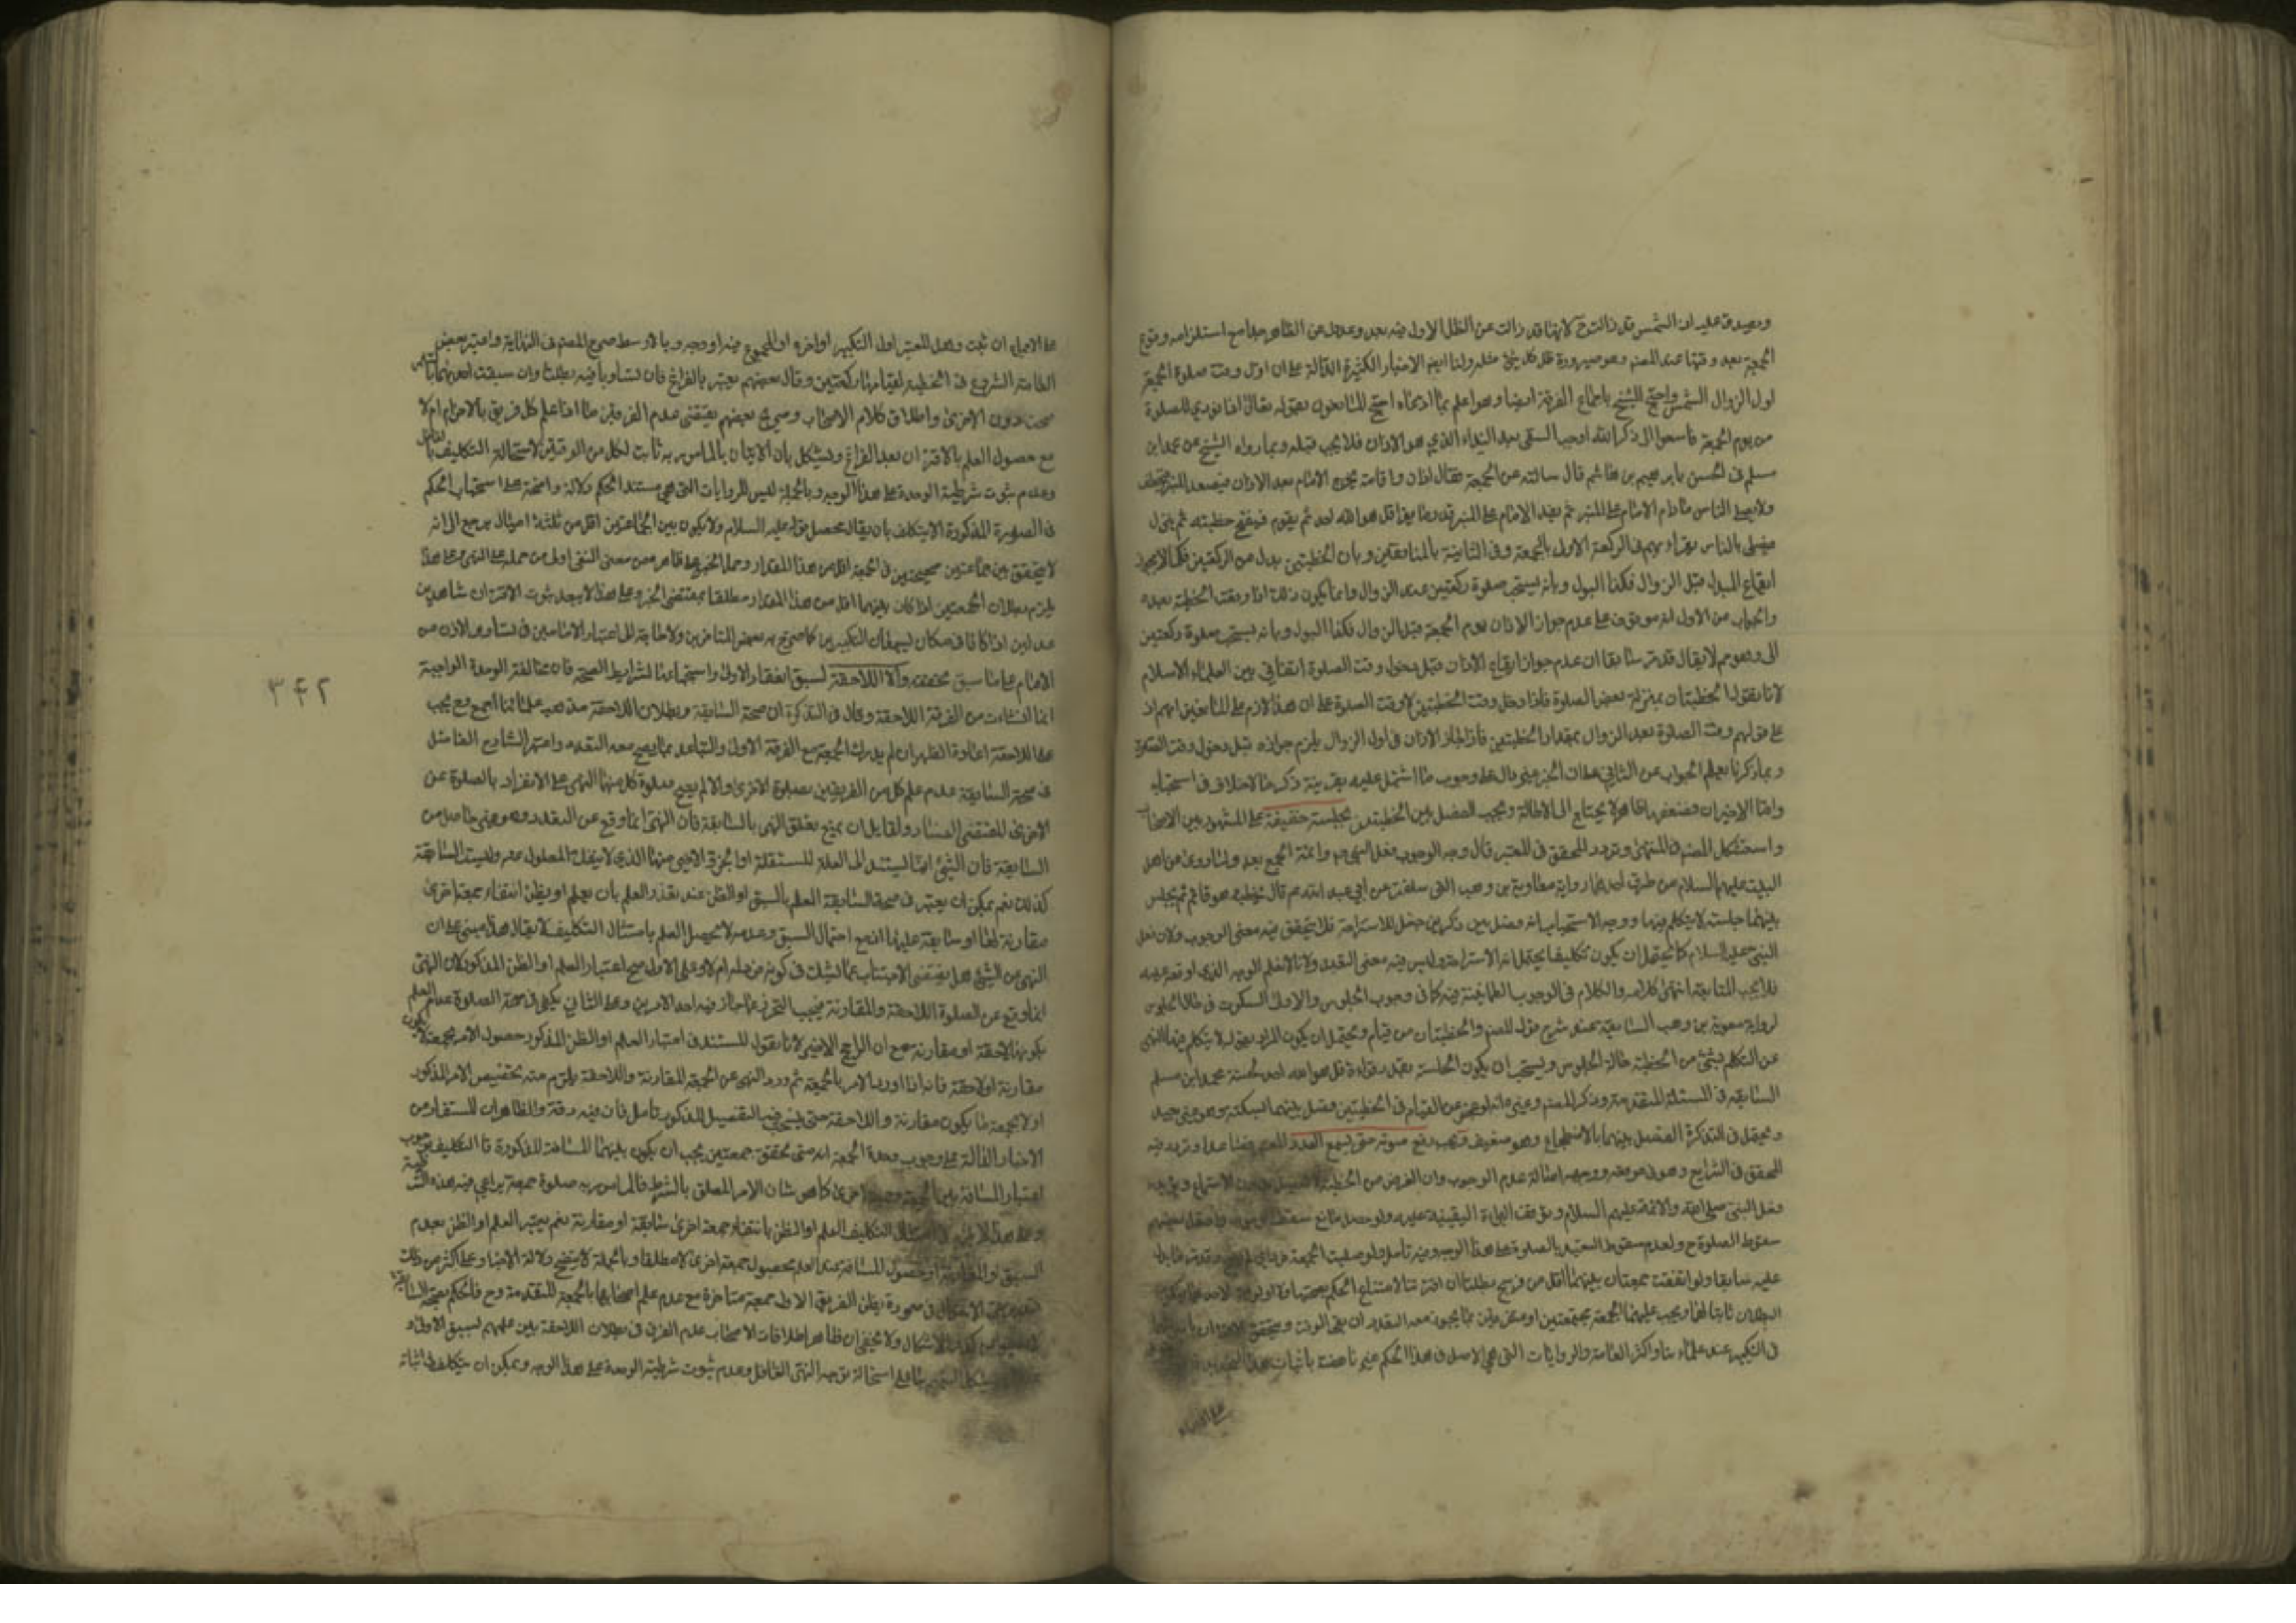 ويصدق عليه ان الشمس قد زالت ح لانها قد زالت عن الظل الاول فيه بعد وعدول عن الظاهر جدا مع استلزامه وقوع
الجمعة بعد وقتها عند المصنف وهو صيرورة ظل كل شئ مثله ولنا ايضا الاخبار الكثيرة الدالة على ان اول وقت صلوة الجمعة
اول الزوال الشمس واحتج الشيخ باجماع الفرقة ايضا وهو اعلم بما ادعاه احتج المانعون بقوله تعالى اذا نودي للصلوة
من يوم الجمعة فاسعوا الى ذكر الله اوجب السعى بعد النداء الذي هو الاذان فلا يجب قبله وبما رواه الشيخ عن محمد ابن
مسلم في الحسن بابرهيم بن هاشم قال سالته عن الجمعة فقال اذان واقامة يخرج الامام بعد الاذان فيصعد المنبر فيخطب
ولا يصلى الناس ما دام الامام على المنبر ثم يقعد الامام على المنبر قدر ما يقرا قل هو الله احد ثم يقوم فيفتتح خطبته ثم ينزل
فيصلى بالناس يقراء بهم في الركعة الاولى بالجمعة وفي الثانية بالمنافقين وبان الخطبتين بدل من الركعتين فكما لا يجوز
ايقاع المبدل قبل الزوال فكذا البدل وبانه يستحب صلوة ركعتين عند الزوال وانما يكون ذلك اذا وقعت الخطبة بعده
والجواب عن الاول انه موقوف على عدم جواز الاذان يوم الجمعة قبل الزوال فكذا البدل وبانه يستحب صلوة ركعتين
لا يقال قد مر سابقا ان عدم جواز ايقاع الاذان قبل دخول وقت الصلوة اتفاقي بين العلماء الاسلام
لانا نقول الخطبتان بمنزلة بعض الصلوة فاذا دخل وقت الخطبتين وقت الصلوة على ان هذا لازم على المانعين ايضا اذ
على قولهم وقت الصلوة بعد الزوال بمقدار الخطبتين فاذا جاز الاذان في اول الزوال يلزم جوازه قبل دخول وقت الصلوة
وبما ذكرنا يعلم الجواب عن الثاني على ان الخبر غير دال على وجوب ما اشتمل عليه بقرينة ذكر ما لا خلاف في استحبابه
واما الاخيران فضعفهما ظاهر لا يحتاج الى الاطالة ويجب الفصل بين الخطبتين بجلسة خفيفة على المشهور بين الاصحاب
واستشكل المصنف في المنتهى وتردد المحقق في المعتبر قال وجه الوجوب فعل النبي ص والائمة الجمع بعده ولما روى عن اهل
البيت عليهم السلام من طرق احدها رواية معاوية بن وهب التي سلفت عن ابي عبد الله ع قال يخطب وهو قائم ثم يجلس
بينهما جلسة لا يتكلم فيها ووجه الاستحباب انه فصل بين ذكرين جعل للاستراحة فلا يتحقق فيه معنى الوجوب ولان فعل
النبي عليه السلام كما يحتمل ان يكون تكليفا يحتمل انه الاستراحة وليس فيه معنى التعبد ولانا لا نعلم الوجه الذي اوقعه عليه
فلا يجب المتابعة انتهى كلامه والكلام في الوجوب الطمانينة فيه كما في وجوب الجلوس والاولى السكوت في حال الجلوس
لرواية معوية بن وهب السابقة عند شرح قول المصنف والخطبتان من قيام ويحتمل ان يكون المراد بقوله لا يتكلم فيها النهي
عن التكلم بشئ من الخطبة حالة الجلوس ويستحب ان يكون الجلسة بقدر قراءة قل هو الله احد لحسنة محمد ابن مسلم
السابقة في المسئلة المتقدمة وذكر المصنف وغيره انه لو عجز عن القيام في الخطبتين وفصل بينهما بسكتة وهو غير جيد
ويحتمل في التذكرة الفصل بينهما بالاضطجاع وهو ضعيف ويجب رفع صوته حتى يسمع العدد المعتبر فصاعدا وتردد فيه
المحقق في الشرايع وهو في موقعه ووجهه اصالة عدم الوجوب وان الغرض من الخطبة لا يحصل بدون الاستماع ويؤيده
فعل النبي صلى الله والائمة عليهم السلام وتوقف البراءة اليقينية عليه ولو حصل مانع سقط الوجوب واحتمل بعضهم
سقوط الصلوة ح ولعدم سقوط التعبد بالصلوة على هذا الوجه وفيه تامل ولو صليت الجمعة
عليه سابقا ولو اتفقت جمعتان بينهما اقل من فرسخ بطلتا ان اقترنتا لامتناع الحكم بصحتهما ولا اولوية لاحدهما
البطلان ثابتا لهما ويجب عليهما الجمعة مجتمعتين او متفرقين بما يجوز معه التعدد ان بقى الوقت ويتحقق الاقتران
في التكبير عند علماءنا واكثر العامة والروايات التي هي الاصل في هذا الحكم غير ناهضة باثبات هذا التحديد
على الاجماع ان ثبت وهل المعتبر اول التكبير او اخره او المجموع فيه اوجه وبالاوسط صرح المصنف في النهاية واعتبر بعض
العامة الشروع في الخطبة لقيامها مقام ركعتين وقال بعضهم يعتبر بالفراغ فان تساويا فيه بطلتا وان سبقت احديهما
صحت دون الاخرى واطلاق كلام الاصحاب وصريح بعضهم يقتضى عدم الفرق بين ما اذا علم كل فريق بالاحرام ام لا
مع حصول العلم بالاقتران بعد الفراغ ويشكل بان الاتيان بالمامور به ثابت لكل من الفرقين لاستحالة التكليف بالغافل
وعدم ثبوت شرطية الوحدة على هذا الوجه وبالجملة ليس للروايات التي هي مستند الحكم دلالة واضحة على استحباب الحكم
في الصورة المذكورة الا بتكلف بان يقال محصل قوله عليه السلام ولا يكون بين الجماعتين اقل من ثلثة اميال يرجع الى انه
لا يتحقق بين جماعتين صحيحتين في الجمعة اقل من هذا المقدار وحمل الخبر على ظاهره من معنى النفي اولى من حمله على النهى وعلى هذا
يلزم بطلان الجمعتين اذا كان بينهما اقل من هذا المقدار مطلقا بمقتضى الخبر وعلى هذا لا يبعد ثبوت الاقتران شاهدين
عدلين اذا كانا في مكان يسمعان التكبيرين كما صرح به بعض المتاخرين ولا حاجة الى اعتبار الامامين في تساو والاذن من
الامام على ما سبق تحقيقه والا اللاحقة لسبق انعقاد الاولى واستجماعها لشرايط الصحة فان مخالفة الوحدة الواجبة
انما انشات من الفرقة اللاحقة وقال في التذكرة ان صحة السابقة وبطلان اللاحقة مذهب علمائنا اجمع مع يجب
على اللاحقة اعادة الظهر ان لم يدرك الجمعة مع الفرقة الاولى والتباعد بما يصح معه التعدد واعتبر الشارح الفاضل
في صحة السابقة عدم علم كل من الفريقين بصلوة الاخرى والا لم يصح صلوة كل منهما للنهى عن الانفراد بالصلوة عن
الاخرى المقتضى للفساد ولقايل ان يمنع تعلق النهى بالسابقة فان النهى انما وقع عن التعدد وهو غير حاصل من
السابقة فان الشئ انما يستند الى العلة المستقلة او الجزء الاخير منها الذي لا ينفك المعلول عنه وليست السابقة
كذلك نعم يمكن ان يعتبر في صحة السابقة العلم بالسبق او الظن عند تعذر العلم بان يعلم او يظن انتفاء جمعة اخرى
مقارنة لها او سابقة عليها اذ مع احتمال السبق وعدمه لا يحصل العلم بامتثال التكليف لا يقال هذا مبنى على ان
النهى عن الشئ هل يقتضى الاجتناب عما يشك في كونه فردا له ام لا وعلى الاول صح اعتبار العلم او الظن المذكور لان النهى
انما وقع عن الصلوة اللاحقة والمقارنة فيجب التحرز عما جاز فيه احد الامرين وعلى الثاني يكفى في صحة الصلوة عدم العلم
بكونها لاحقة او مقارنة مع ان الراجح الاخير لانا نقول المستند في اعتبار العلم او الظن المذكور حصول الامر بجمعة لا يكون
مقارنة او لاحقة فانه اذا ورد الامر بالجمعة ثم ورد النهى عن الجمعة المقارنة واللاحقة يلزم منه تخصيص الامر المذكور
اولا بجمعة ما يكون مقارنة واللاحقة حتى ينسحب فيه التفصيل المذكور تامل فان فيه دقة والظاهر ان المستفاد من
الاخبار الدالة على وجوب وحدة الجمعة انه متى تحقق جمعتين يجب ان يكون بينهما المسافة المذكورة
اعتبار المسافة بينها وجمعة اخرى كما هو شان الامر المعلق بالشرط فالمامور به صلوة جمعة يراعى فيه هذه
التكليف العلم او الظن بانتفاء جمعة اخرى سابقة او مقارنة نعم يعتبر العلم او الظن بعدم
السبق او المقارنة او حصول المسافة عند العلم بحصول جمعة اخرى لا مطلقا وبالجملة لا يتضح دلالة الاخبار على اكثر من ذلك
في صورة يظن الفريق الاول جمعة متاخرة مع عدم علم اصحابها بالجمعة المتقدمة وح فالحكم بصحة السابقة
الاشكال ولا يخفى ان ظاهر اطلاقات الاصحاب عدم الفرق في بطلان اللاحقة بين علمهم لسبق الاولى و
استحالة توجه النهى الغافل وعدم ثبوت شرطية الوحدة على هذا الوجه ويمكن ان يتكلف في اثباته
على الاجماع
٣٤٢